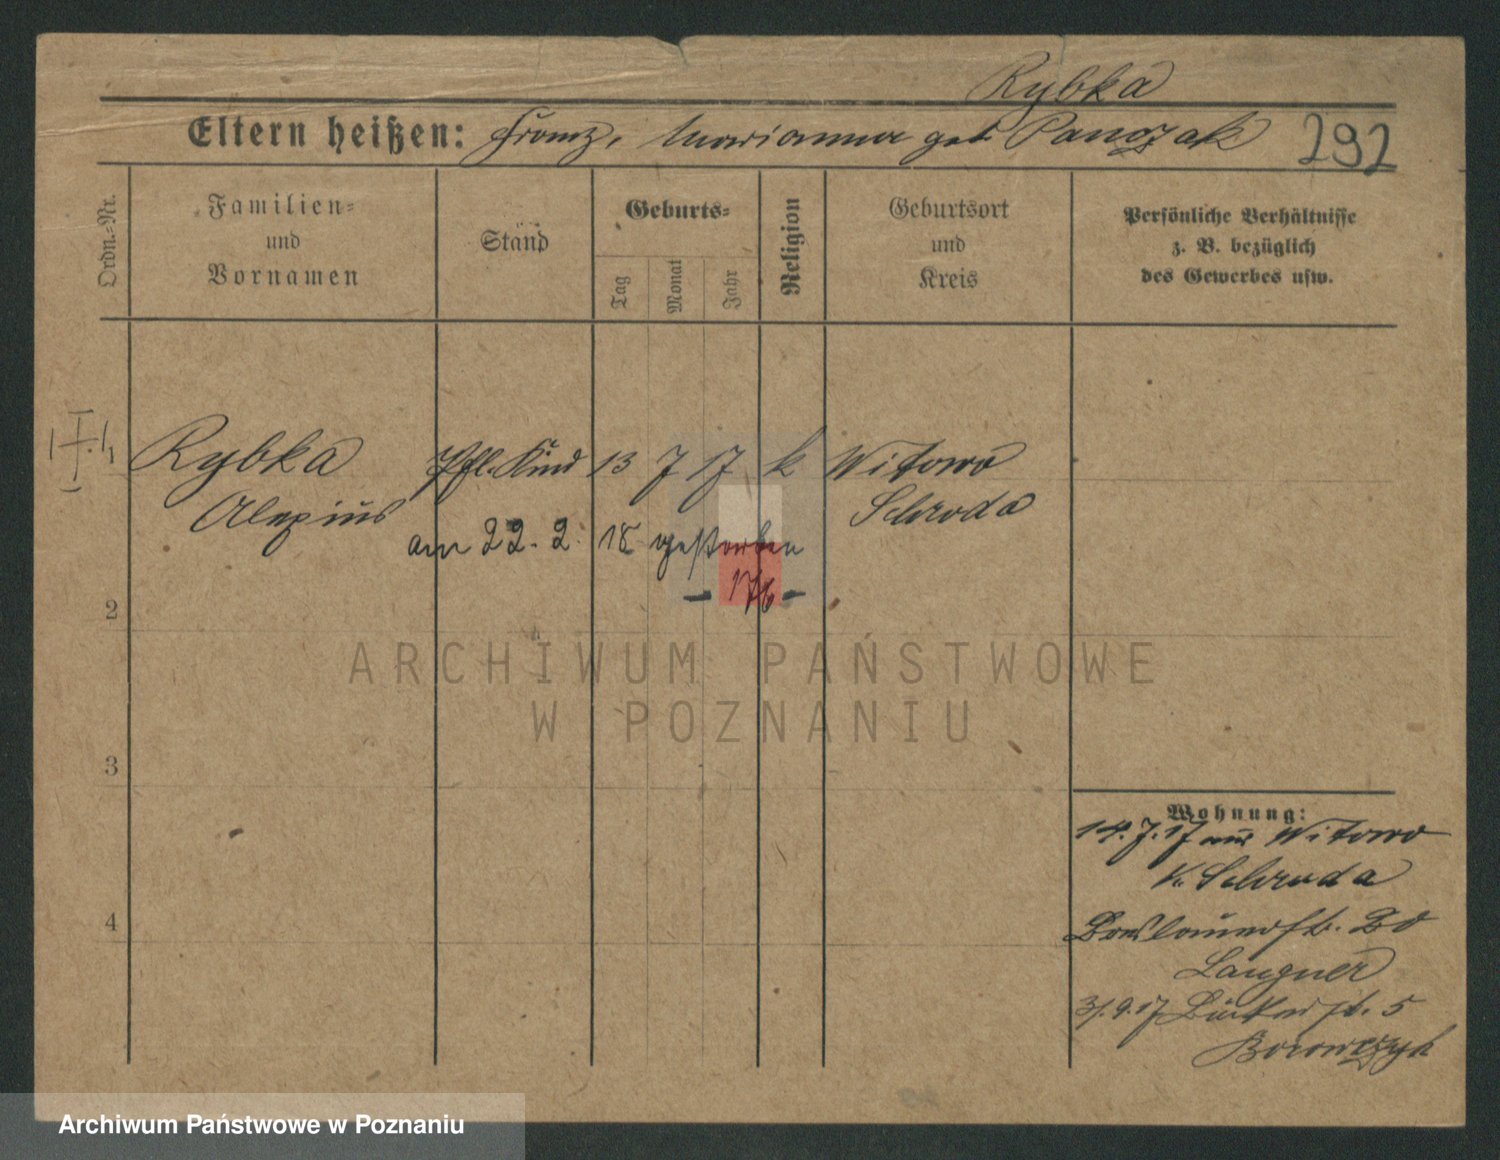 Rybka
Eltern heißen: Franz, Marianna geb Panczak 292
Ordn.-Nr. Familien= und Vornamen Stand Geburts= Tag Monat Jahr Religion Geburtsort und Kreis Persönliche Verhältnisse z. B. bezüglich des Gewerbes usw.
1 Rybka Pfl. Kind 13 7 17 k Witowo
Alexius Schroda
am 22. 2. 18 gestorben
2
ARCHIWUM PAŃSTWOWE
W POZNANIU
3
Wohnung:
14.7.17 aus Witowo
K. Schroda
4
Breslauerstr.
Langner
31.9.17 Bäckerstr. 5
Borowczyk
Archiwum Państwowe w Poznaniu